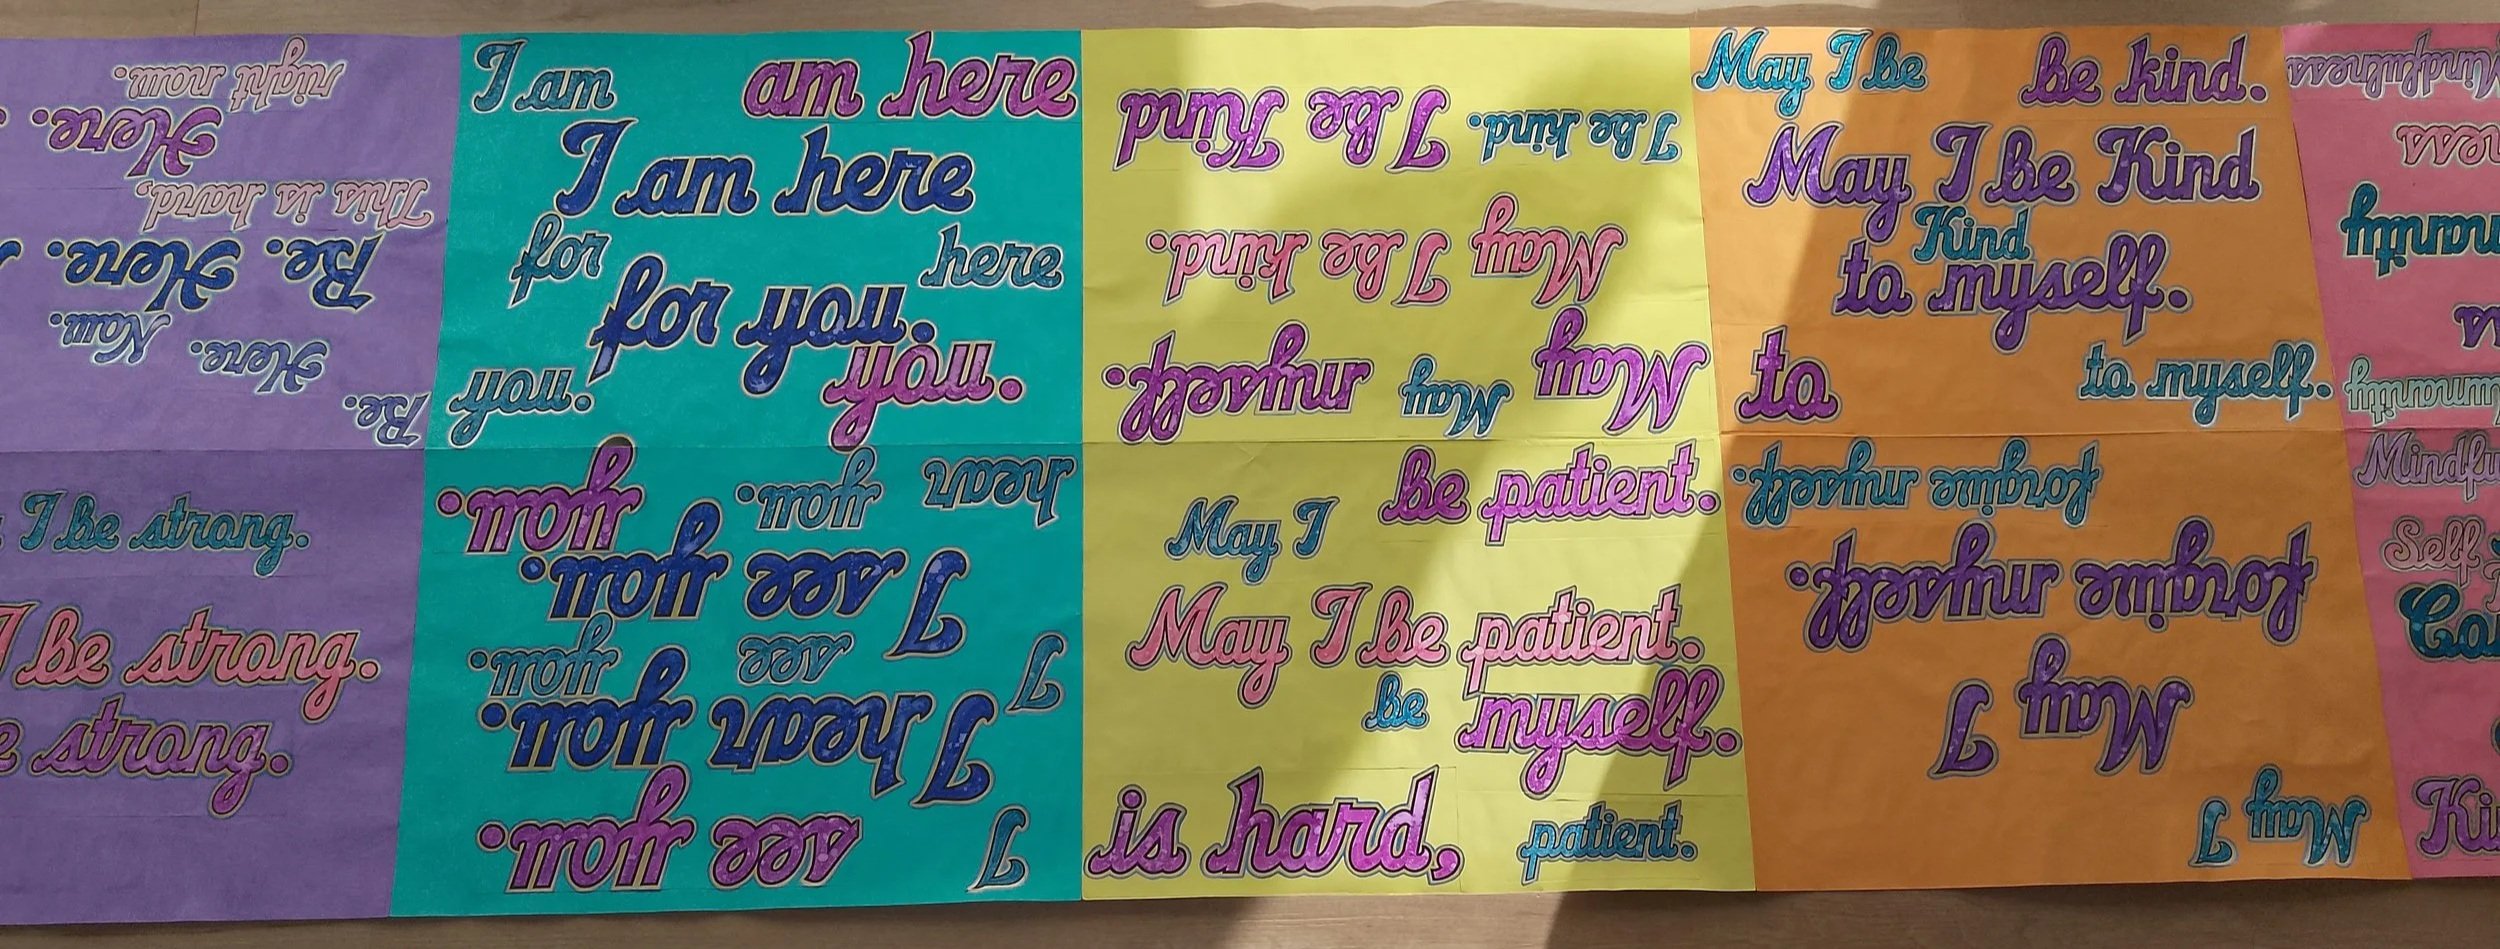 Be.
Here.
Now.
Be. Here.
This is hard,
Here.
right now.
I be strong.
I be strong.
strong.
I am am here
I am here
for here
for you.
you. you.
I
see you.
I hear you.
I
see you.
I see you.
hear you. you.
May May myself.
May I be kind.
I be kind. I be Kind
be patient.
May I
May I be patient.
be myself.
is hard, patient.
May I be be kind.
May I be Kind
Kind
to myself.
to to myself.
May I
May I
forgive myself.
forgive myself.
Mindfulness
Self